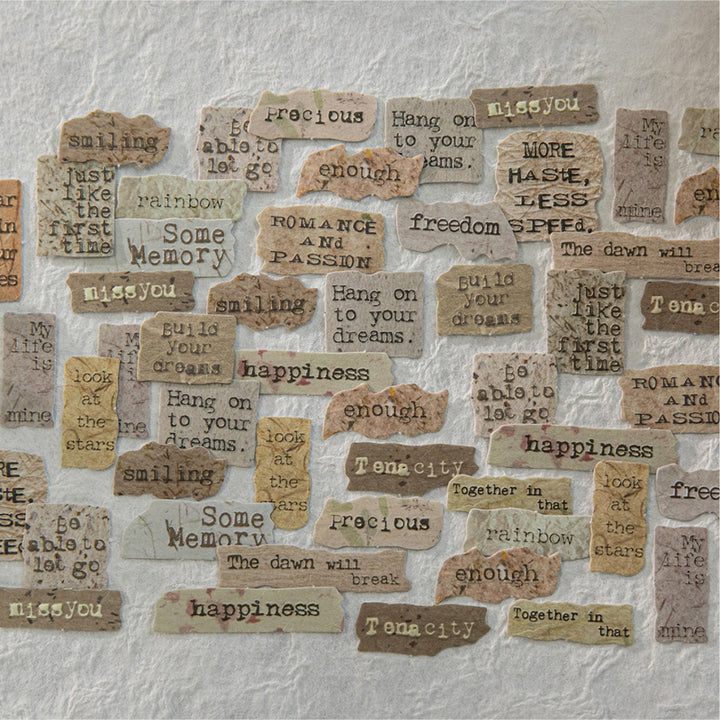 smiling
Be
able to
let go
Precious
Hang on
to your
dreams.
missyou
My
life
is
mine
Just
like
the
first
time
rainbow
enough
MORE
HASTE,
LESS
SPEED.
Some
Memory
ROMANCE
ANd
PASSION
freedom
The dawn will
brea
missyou
smiling
Hang on
to your
dreams.
Build
your
dreams
Just
like
the
first
time
Tenac
My
life
is
mine
My
life
is
mine
Build
your
dreams
happiness
look
at
the
stars
Hang on
to your
dreams.
enough
Be
able to
let go
ROMANC
ANd
PASSIO
smiling
look
at
the
stars
Tenacity
happiness
look
at
the
stars
free
Together in
that
Be
able to
let go
Some
Memory
Precious
rainbow
The dawn will
break
enough
My
life
is
mine
missyou
happiness
Tenacity
Together in
that